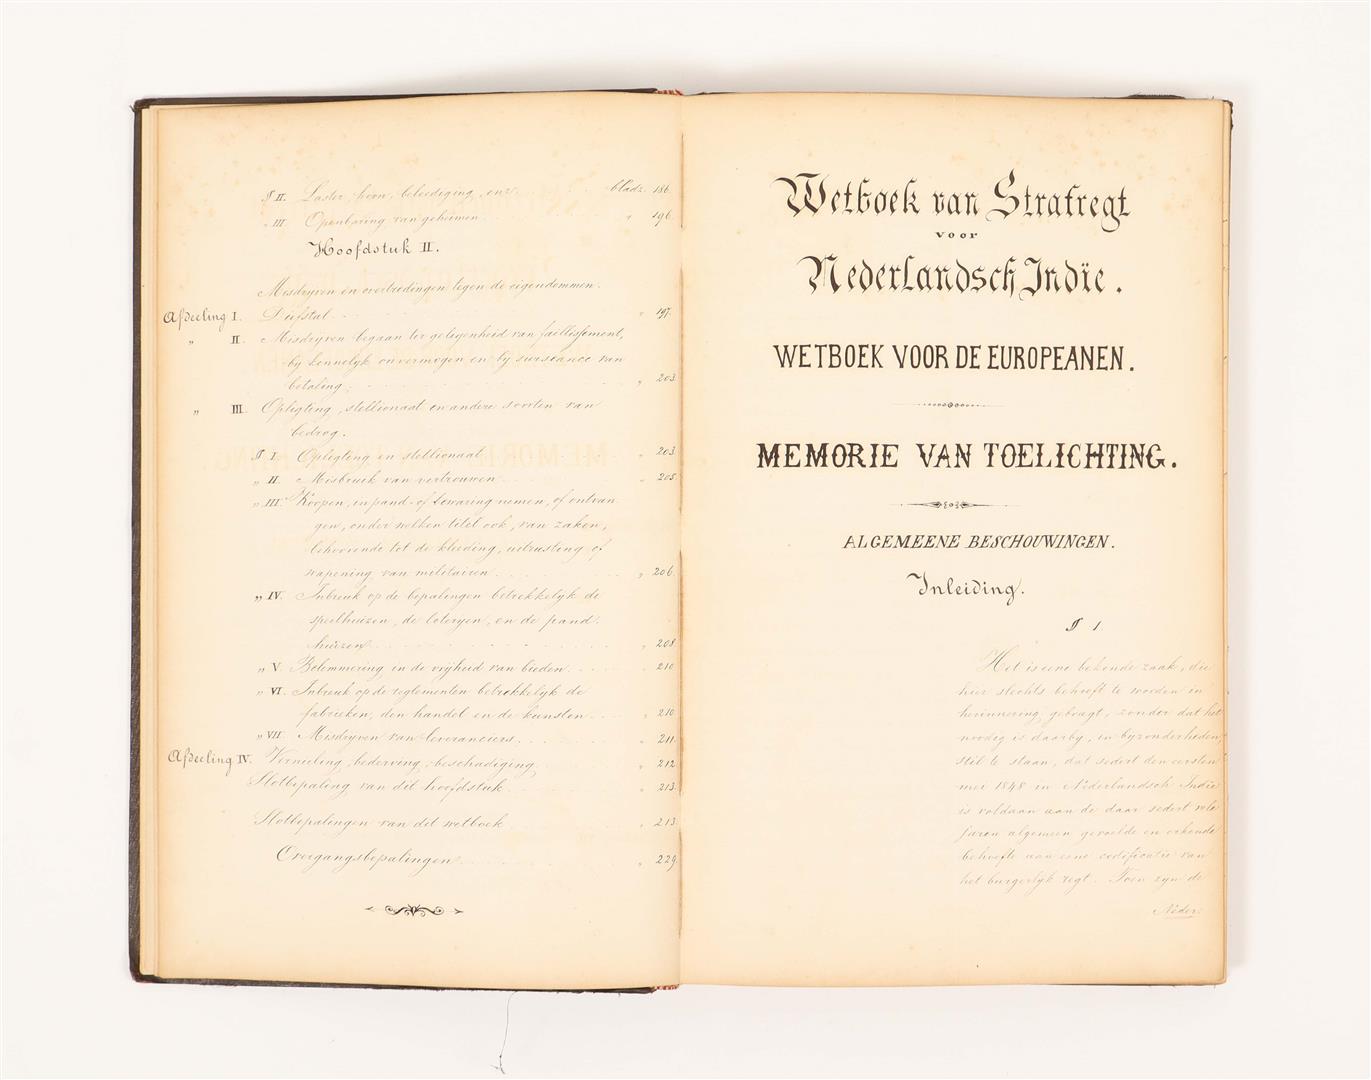 § II. Laster, hoon, beleediging, enz. bladz. 186.
„ III. Openbaring van geheimen „ 196.
Hoofdstuk II.
Misdryven en overtredingen tegen de eigendommen.
Afdeeling I. Diefstal „ 197.
„ II. Misdryven begaan ter gelegenheid van faillissement,
by kennelyk onvermogen en by surseance van
betaling. „ 203.
„ III. Opligting, stellionaat en andere soorten van
bedrog.
§ I. Opligting en stellionaat „ 203.
„ II. Misbruik van vertrouwen „ 205.
„ III. Koopen, in pand- of bewaring nemen, of ontvan
gen, onder welken titel ook, van zaken,
behoorende tot de kleeding, uitrusting of
wapening van militairen „ 206.
„ IV. Inbreuk op de bepalingen betrekkelyk de
speelhuizen, de loteryen, en de pand-
huizen „ 208.
„ V. Belemmering in de vryheid van bieden „ 210.
„ VI. Inbreuk op de reglementen betrekkelyk de
fabrieken, den handel en de kunsten „ 210.
„ VII. Misdryven van leveranciers „ 211.
Afdeeling IV. Vernieling, bederving, beschadiging „ 212.
Slotbepaling van dit hoofdstuk „ 213.
Slotbepalingen van dit wetboek „ 213.
Overgangsbepalingen „ 229.
Wetboek van Strafregt
voor
Nederlandsch Indïe.
WETBOEK VOOR DE EUROPEANEN.
MEMORIE VAN TOELICHTING.
ALGEMEENE BESCHOUWINGEN.
Inleiding.
§ 1.
Het is eene bekende zaak, die
hier slechts behoeft te worden in
herinnering gebragt, zonder dat het
noodig is daarby, in byzonderheden
stil te staan, dat sedert den eersten
mei 1848 in Nederlandsch Indie
is voldaan aan de daar sedert vele
jaren algemeen gevoelde en erkende
behoefte aan eene codificatie van
het burgerlyk regt. Toen zyn de
Neder-